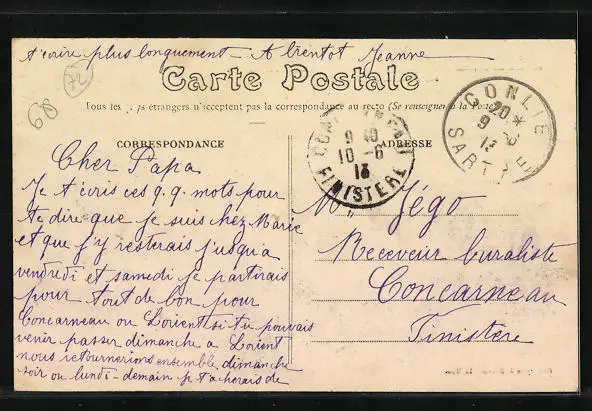 t'écrire plus longuement - A bientot Jeanne
68
72
Carte Postale
Tous les pays étrangers n'acceptent pas la correspondance au recto (Se renseigner à la Poste)
CORRESPONDANCE
ADRESSE
CONLIE
20*
9 -6
13
SARTHE
CONCARNEAU
9 40
10 -6
13
FINISTERE
Cher Papa
Je t'écris ces q.q. mots pour
te dire que je suis chez Marie
et que j'y resterais jusqu'a
vendredi et samedi je partirais
pour tout de bon pour
Concarneau ou Lorient si tu pouvais
venir passer dimanche a Lorient
nous retournerions ensemble dimanche
soir ou lundi - demain je tacherais de
Mr Jégo
Receveur buraliste
Concarneau
Finistere